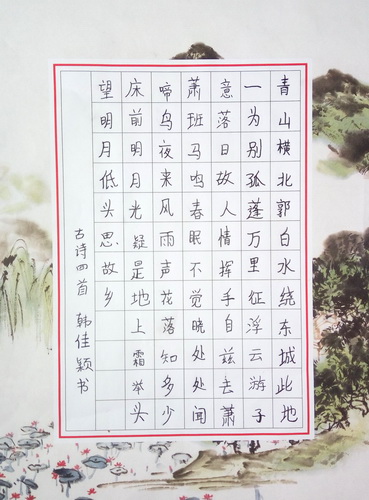 青山横北郭白水绕东城此地
一为别孤蓬万里征浮云游子
意落日故人情挥手自兹去萧
萧班马鸣春眠不觉晓处处闻
啼鸟夜来风雨声花落知多少
床前明月光疑是地上霜举头
望明月低头思故乡
古诗四首 韩佳颖书